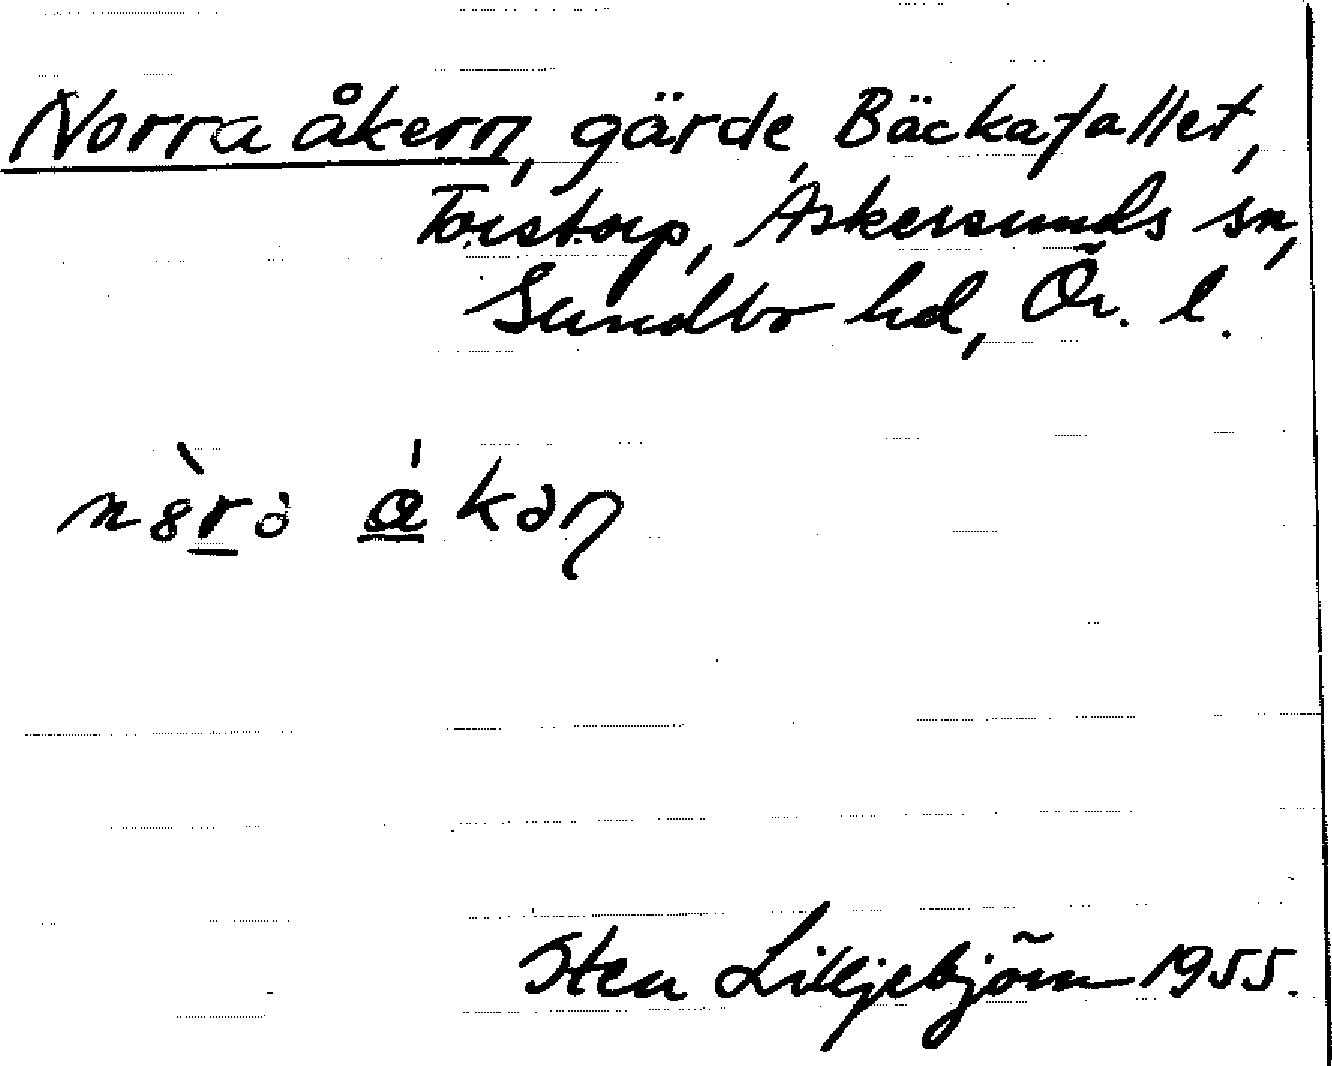 Norra åkern, gärde, Bäckafallet,
Torstorp, Askersunds sn,
Sundbo hd, Ör. l.
Sten Lilljebjörn 1955.